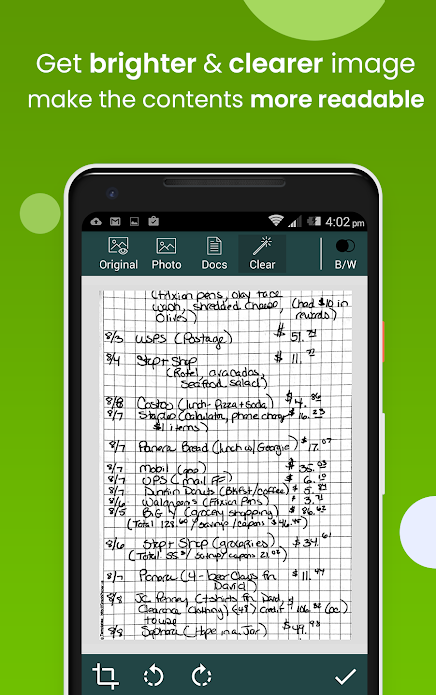 Get brighter & clearer image
make the contents more readable
4:02 pm
Original Photo Docs Clear B/W
(Frixion pens, olay face
wash, shredded cheese, (had $10 in
Olives) rewards)
8/3 USPS (Postage) $51.74
8/4 Stop + Shop $11.77
(Rotel, avocados,
seafood salad)
8/8 Costco (lunch - Pizza + Soda) $4.86
8/7 Staples (Calculator, phone charger $16.23
$1 items)
8/7 Panera Bread (lunch w/ Georgie) $17.07
8/7 mobil (gas) $35.03
8/7 UPS (mail $6.10
8/7 Dunkin Donuts (Bkfst/coffee) $5.
8/6 Walgreens (Frixion Pens) $3.71
8/5 BIG Y (grocery shopping) $86.62
(Total 128. /savings/coupons $
8/6 Stop + Shop (groceries) $34.61
(Total 55. /savings/coupons 21.02)
8/7 Panera (4 - bear claws for $11.44
David)
8/8 JC Penney (t-shirts for David,
Clearance clothing) ($48) credit $106.82 (pc)
8/8 Sephora (hope in a Jar) $49.98